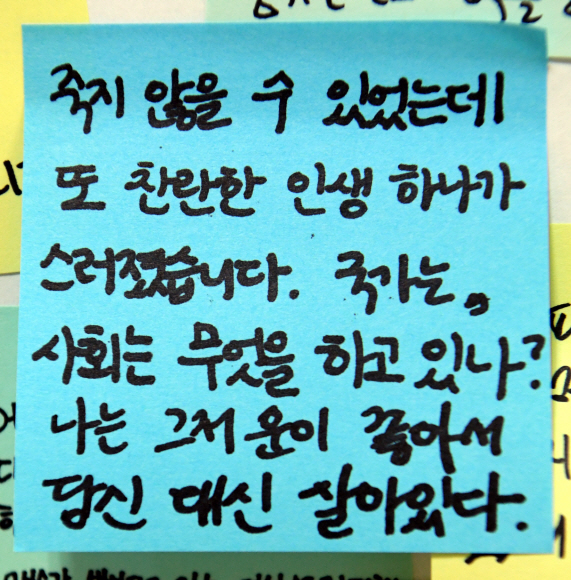 죽지 않을 수 있었는데
또 찬란한 인생 하나가
스러졌습니다. 국가는,
사회는 무엇을 하고 있나?
나는 그저 운이 좋아서
당신 대신 살아있다.